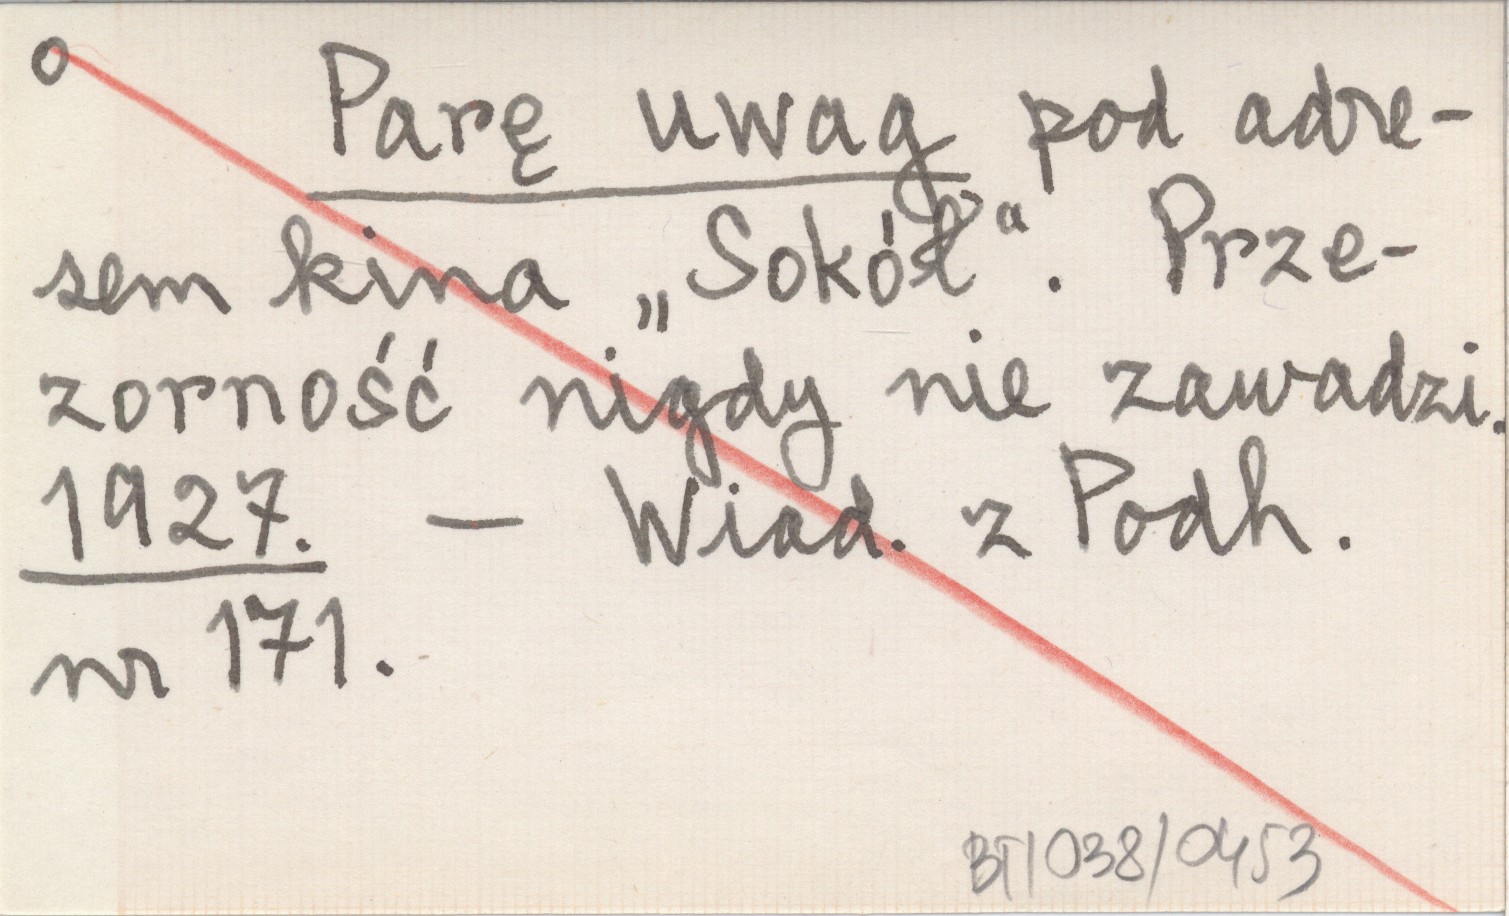 o Parę uwag pod adre-
sem kina „Sokół“. Prze-
zorność nigdy nie zawadzi.
1927. — Wiad. z Podh.
nr 171.
BT/038/0453